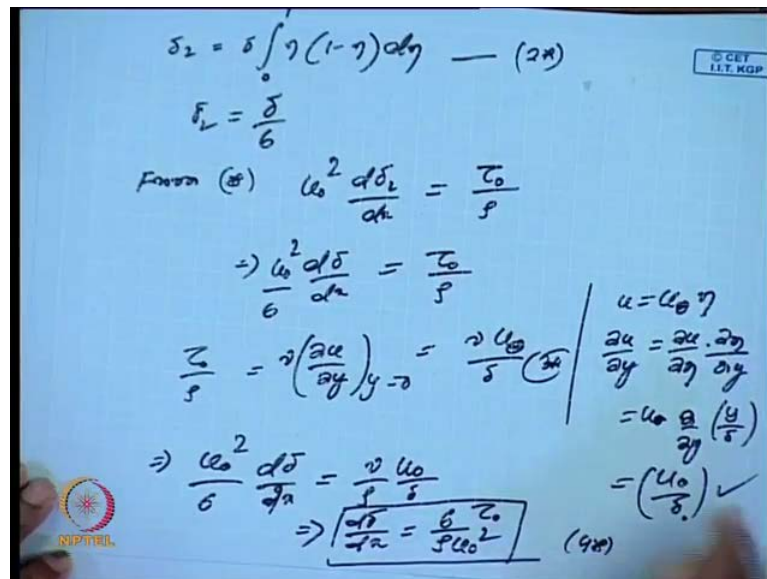 δ₂ = δ ∫₀¹ η(1-η)dη — (2*)
© CET
I.I.T. KGP
δ₂ = δ/6
From (*) u₀² dδ₂/dx = τ₀/ρ
⇒ u₀²/6 dδ/dx = τ₀/ρ
τ₀/ρ = ν(∂u/∂y)y=0 = ν u₀/δ (3*)
u = u₀ η
∂u/∂y = ∂u/∂η · ∂η/∂y
= u₀ ∂/∂y (y/δ)
= (u₀/δ) ✓
⇒ u₀²/6 dδ/dx = ν/ρ u₀/δ
⇒ dδ/dx = 6 τ₀/ρu₀² (4*)
NPTEL